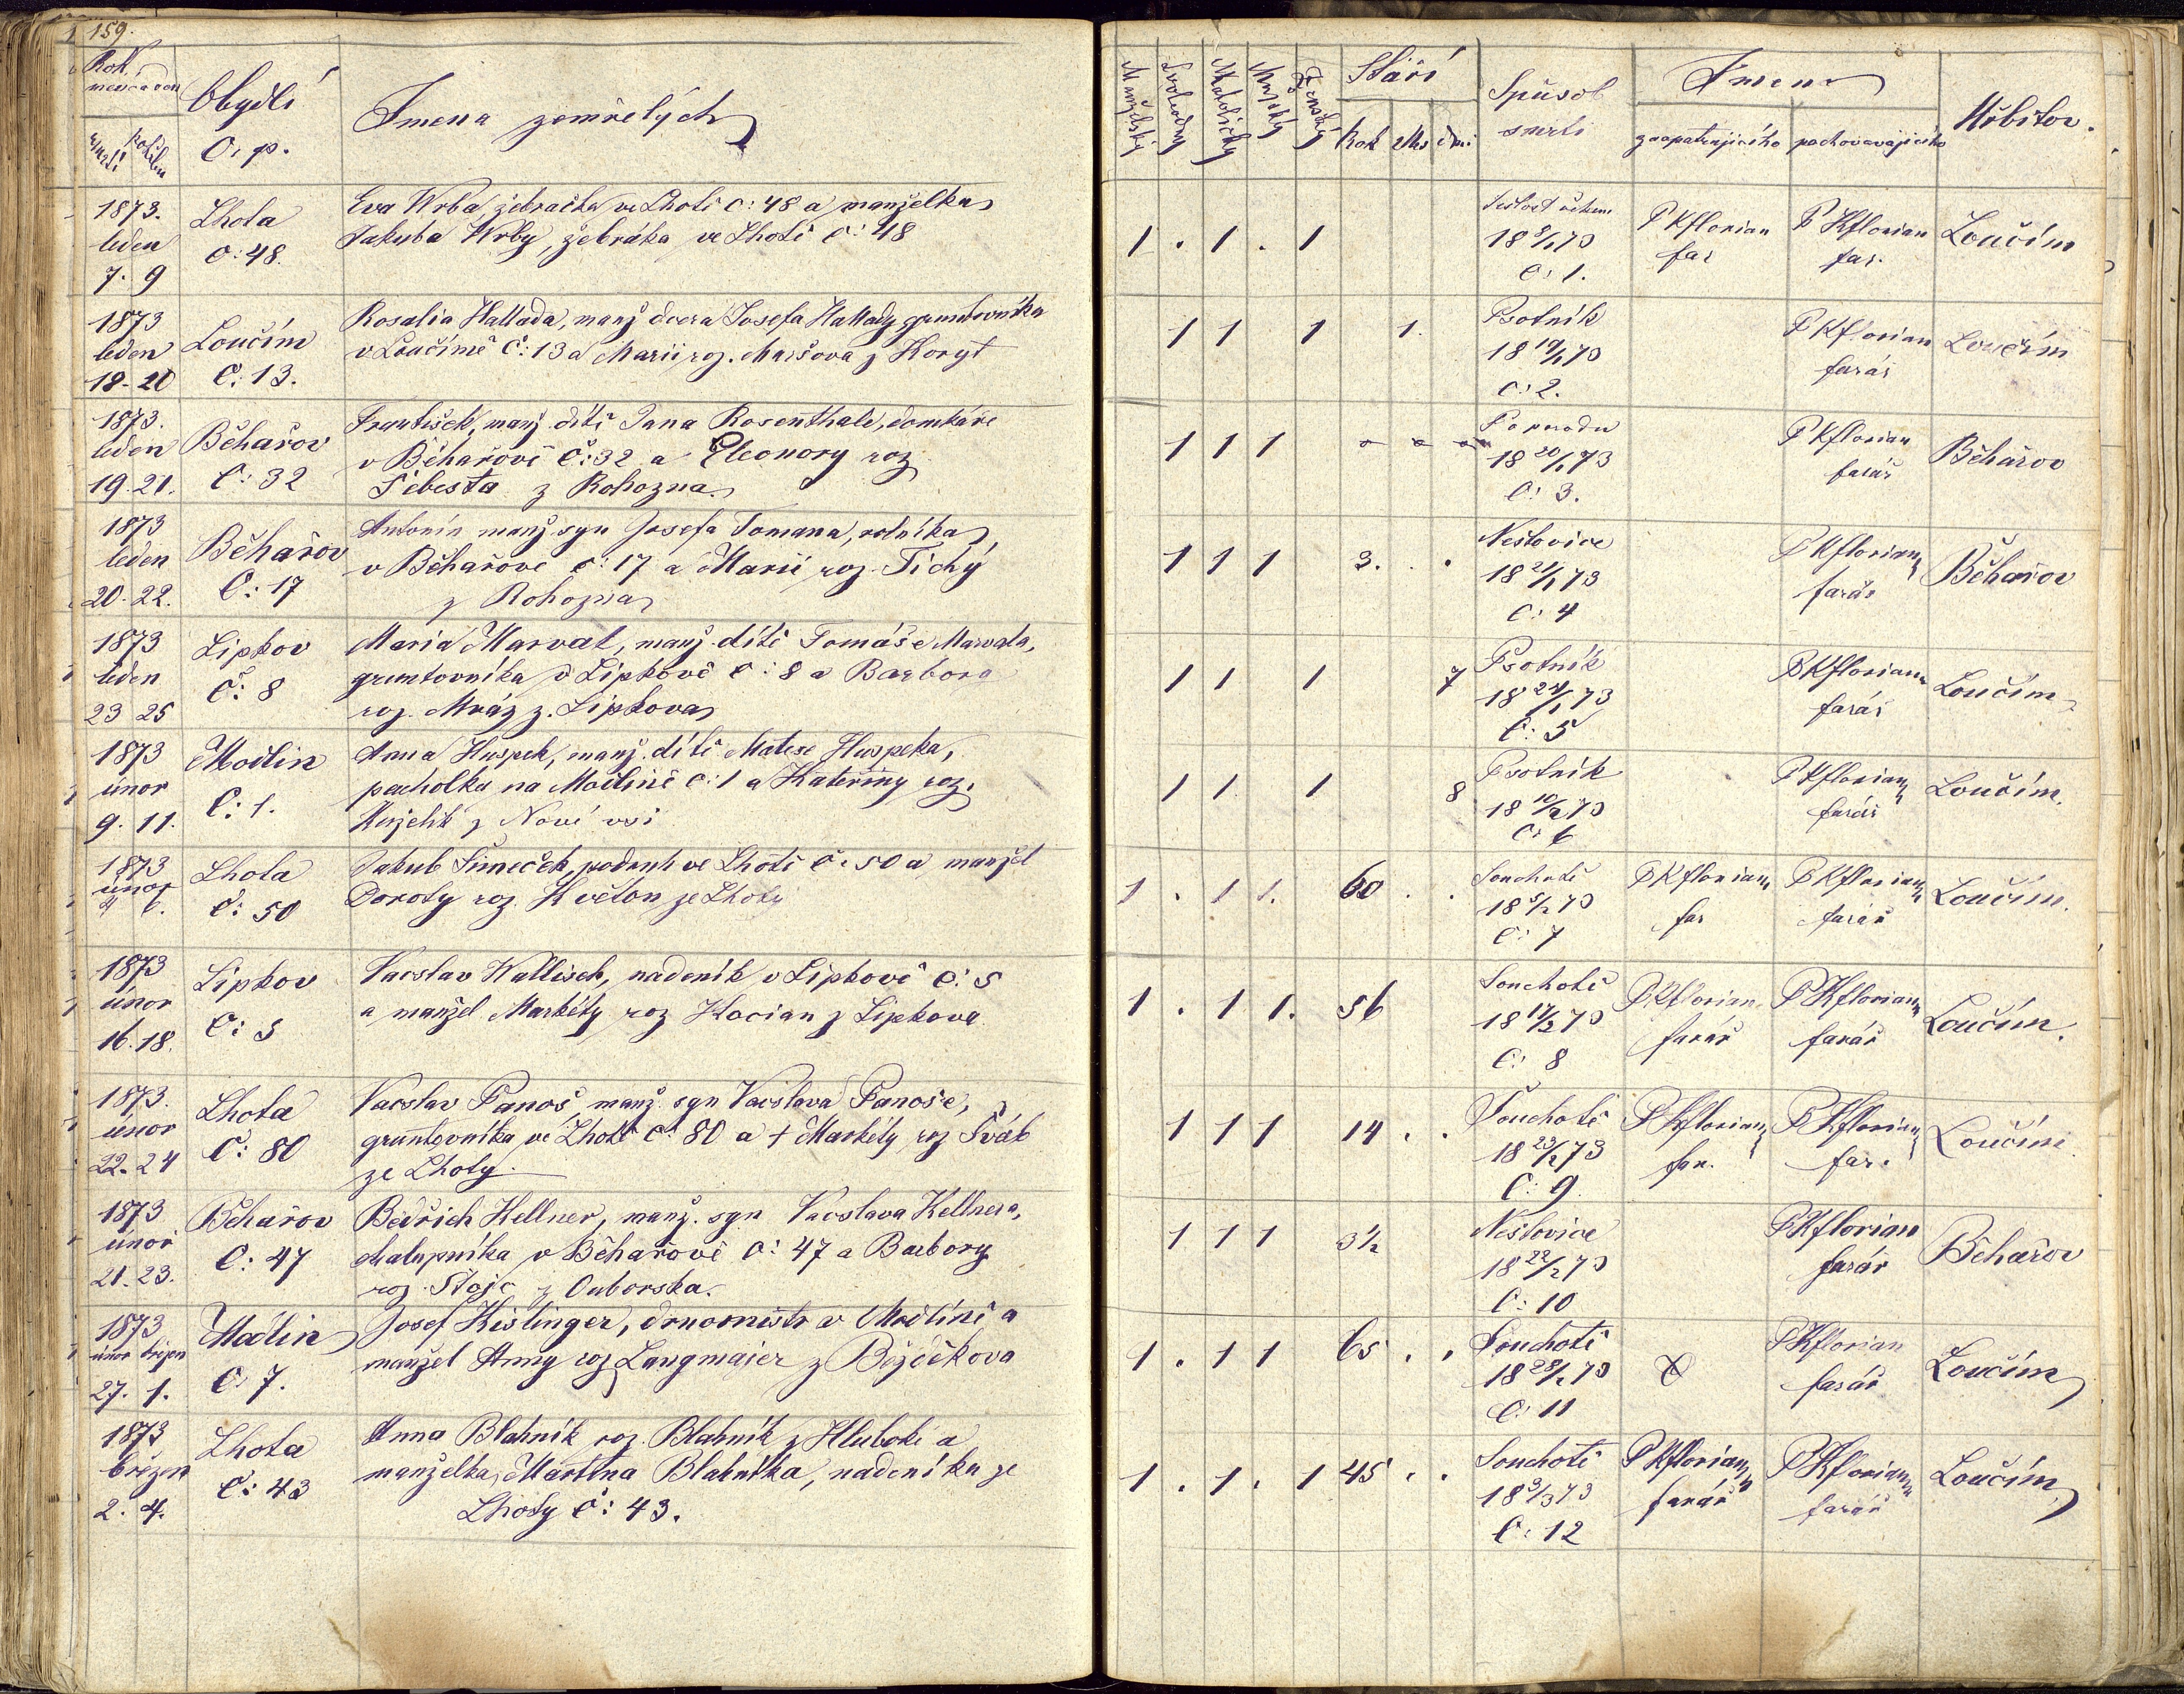 159.
Rok
měsíc a den
smrti
pohřbu
Obydlí
č. p.
Jmena zemřelých
1873.
leden
7. 9
Lhota
č: 48.
Eva Wrba, žebračka ve Lhotě č: 48 a manželka
Jakuba Wrby, žebráka ve Lhotě č: 48
1873
leden
18-20
Loučím
č: 13.
Rosalia Hallada, manž dcera Josefa Hallady gruntovníka
v Loučímě č: 13 a Marii roz. Maršova z Koryt
1873.
leden
19.21.
Běhařov
č: 32
František, manž. dítě Jana Rosenthale, domkáře
v Běhařově č: 32 a Eleonory roz
Šebesta z Rohozna
1873
leden
20.22.
Běhařov
č: 17
Antonín manž syn Josefa Tomana, rolníka
v Běhařově č: 17 a Marii roz. Tichý
z Rohozna
1873
leden
23 25
Lipkov
č: 8
Maria Marvat, manž. dítě Tomáše Marvata,
gruntovníka v Lipkově č: 8 a Barbora
roz. Mráz z. Lipkova
1873
únor
9. 11.
Modlin
č: 1.
Anna Huspek, manž. dítě Matese Huspeka,
pacholka na Modlině č: 1 a Kateřiny roz.
z Nové vsi
1873
únor
Lhota
č: 50
Jakub Šimeček, podruh ve Lhotě č: 50 a manžel
Doroty roz. Květon ze Lhoty
1873
únor
16.18.
Lipkov
č: 5
Vacslav Wallisch, nadeník v Lipkově č: 5
a manžel Markéty roz Kocian z Lipkova
1873.
únor
22.24
Lhota
č: 80
Vacslav Panoš, manž. syn Vacslava Panoše,
gruntovníka ve Lhotě č: 80 a † Markéty roz Šváb
ze Lhoty.
1873
únor
21.23.
Běhařov
č: 47
Bedřich Kellner, manž. syn Vacslava Kellnera,
chalupníka v Běhařově č: 47 a Barbory
roz. z Ouborska.
1873
únor březen
27. 1.
Modlin
č: 7.
Josef Kislinger, v Modlině a
manžel Anny roz Langmajer z Bezděkova
1873
březen
2. 4.
Lhota
č: 43
Anna Blahník roz. Blahník z Hluboké a
manželka Martina Blahníka, nadeníka ze
Lhoty č: 43.
Manželský
Svobodný
Katolický
Mužský
Ženský
Stáří
Rok Měs dni
Spůsob
smrti
Jmeno
zaopatrujícího pochovavajícího
Hřbitov.
1 . 1 . 1
18 8/1 73
č: 1.
P Kflorian
far
P Kflorian
far.
Loučím
1 1 1 1.
Psotník
18 19/1 73
č: 2.
P Kflorian
farář
Loučím
1 1 1
18 20/1 73
č: 3.
P Kflorian
farář
Běhařov
1 1 1 3. . .
Neštovice
18 21/1 73
č: 4
P Kflorian
farář
Běhařov
1 1 1 7
Psotník
18 24/1 73
č: 5
P Kflorian
farář
Loučím
1 1 1 8
Psotník
18 10/2 73
č: 6
P Kflorian
farář
Loučím.
1 . 1 1. 60 . .
Souchotě
18 5/2 73
č: 7
P Kflorian
far
P Kflorian
farář
Loučím.
1 . 1 1. 56
Souchotě
18 17/2 73
č: 8
P Kflorian
farář
P Kflorian
farář
Loučím.
1 1 1 14 . .
Souchotě
18 23/2 73
č: 9.
P Kflorian
far.
P Kflorian
far.
Loučím.
1 1 1 3½
Neštovice
18 22/2 73
č: 10
P Kflorian
farář
Běhařov
1 . 1 1 65 . .
Souchotě
18 28/2 73
č: 11
P Kflorian
farář
Loučím
1 . 1 . 1 45 . .
Souchotě
18 3/3 73
č: 12
P Kflorian
farář
P Kflorian
farář
Loučím